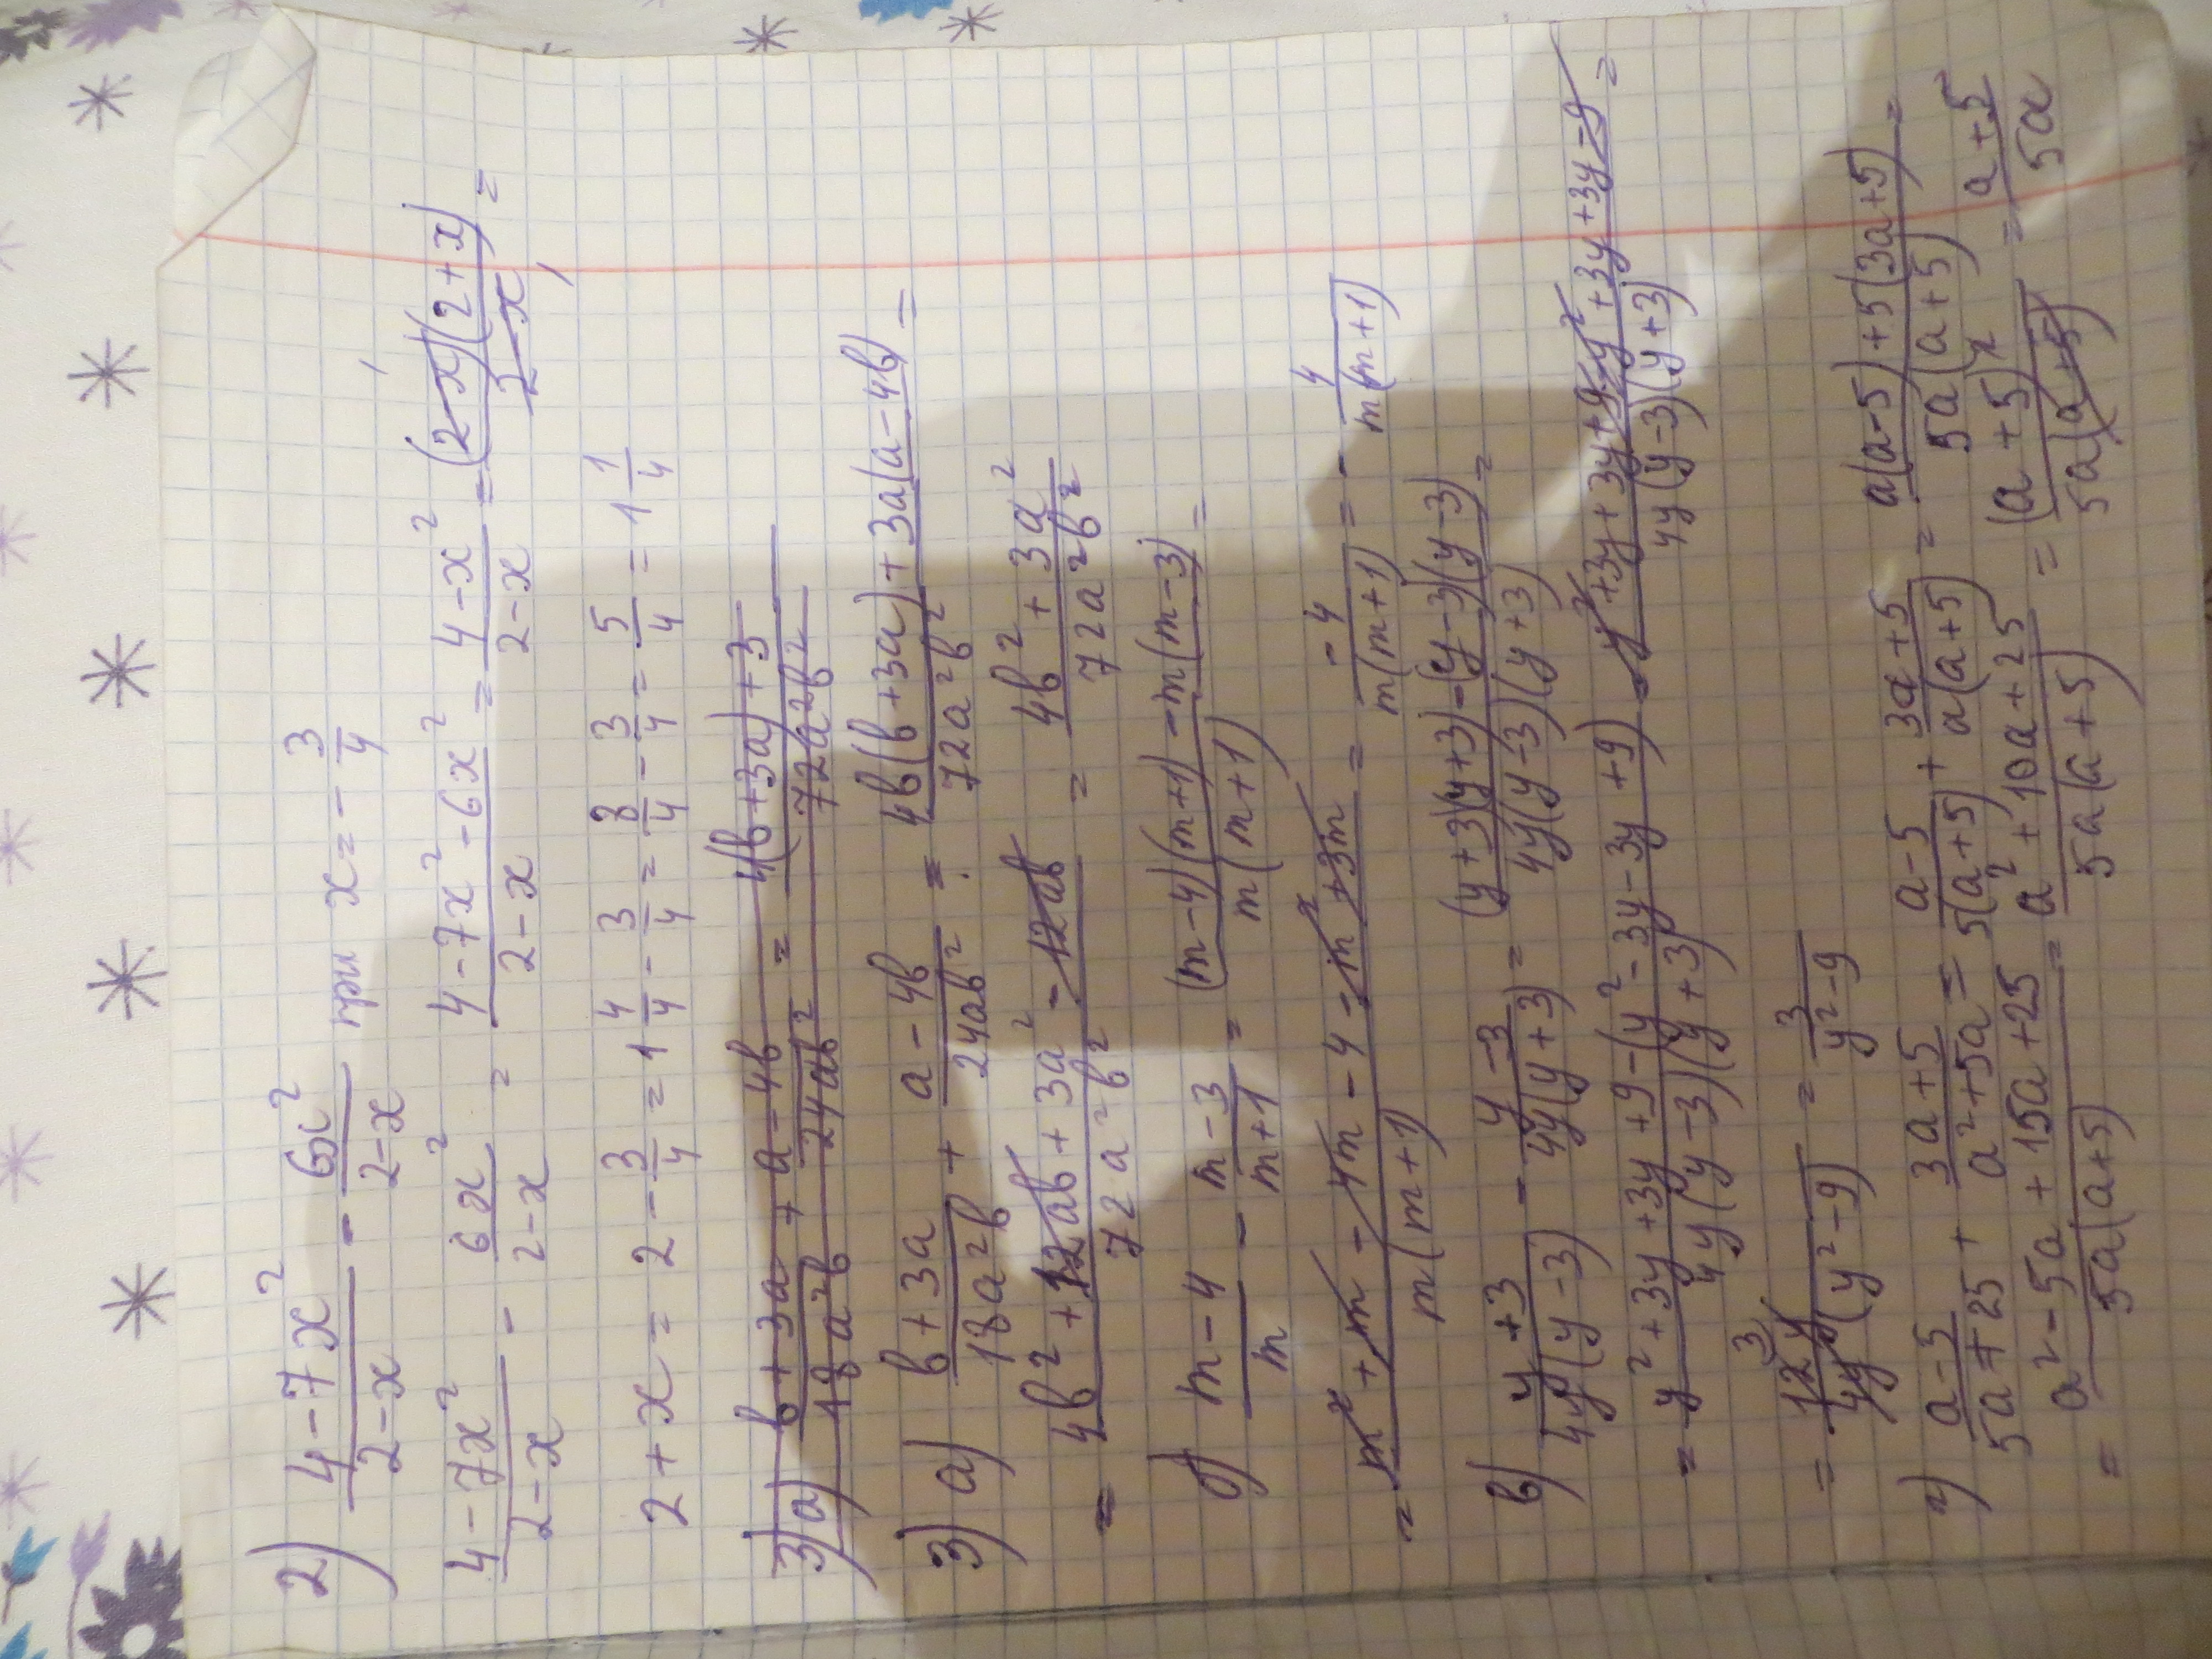 2) (4-7x²)/(2-x) - (6x²)/(2-x) при x = -3/4
(4-7x²)/(2-x) - (6x²)/(2-x) = (4-7x²-6x²)/(2-x) = (4-x²)/(2-x) = ((2-x)(2+x))/(2-x) =
2+x = 2 - 3/4 = 1 4/4 - 3/4 = 8/4 - 3/4 = 5/4 = 1 1/4
3) a) (b+3a)/(18a²b) + (a-4b)/(24ab²) = (4(b+3a)+3)/(72a²b²)
3) a) (b+3a)/(18a²b) + (a-4b)/(24ab²) = (4b(b+3a)+3a(a-4b))/(72a²b²) =
= (4b²+12ab+3a²-12ab)/(72a²b²) = (4b²+3a²)/(72a²b²)
б) (m-4)/m - (m-3)/(m+1) = ((m-4)(m+1)-m(m-3))/(m(m+1)) =
= (m²+m-4m-4-m²+3m)/(m(m+1)) = (-4)/(m(m+1)) = - 4/(m(m+1))
в) (y+3)/(4y(y-3)) - (y-3)/(4y(y+3)) = ((y+3)(y+3)-(y-3)(y-3))/(4y(y-3)(y+3)) =
= (y²+3y+3y+9-(y²-3y-3y+9))/(4y(y-3)(y+3)) = (y²+3y+3y+9-y²+3y+3y-9)/(4y(y-3)(y+3)) =
= (12y)/(4y(y²-9)) = 3/(y²-9)
г) (a-5)/(5a+25) + (3a+5)/(a²+5a) = (a-5)/(5(a+5)) + (3a+5)/(a(a+5)) = (a(a-5)+5(3a+5))/(5a(a+5)) =
= (a²-5a+15a+25)/(5a(a+5)) = (a²+10a+25)/(5a(a+5)) = (a+5)²/(5a(a+5)) = (a+5)/(5a)